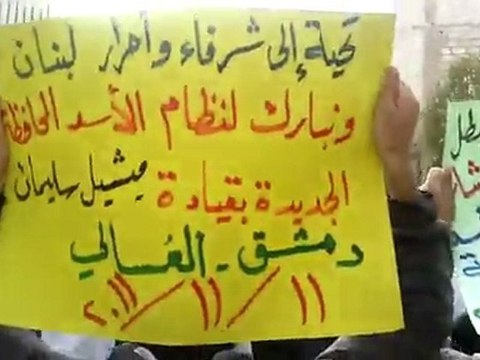 تحية إلى شرفاء وأحرار لبنان
ونبارك لنظام الأسد المحافظة
الجديدة بقيادة ميشيل سليمان
دمشق - العسالي
٢٠١١/١١/١١